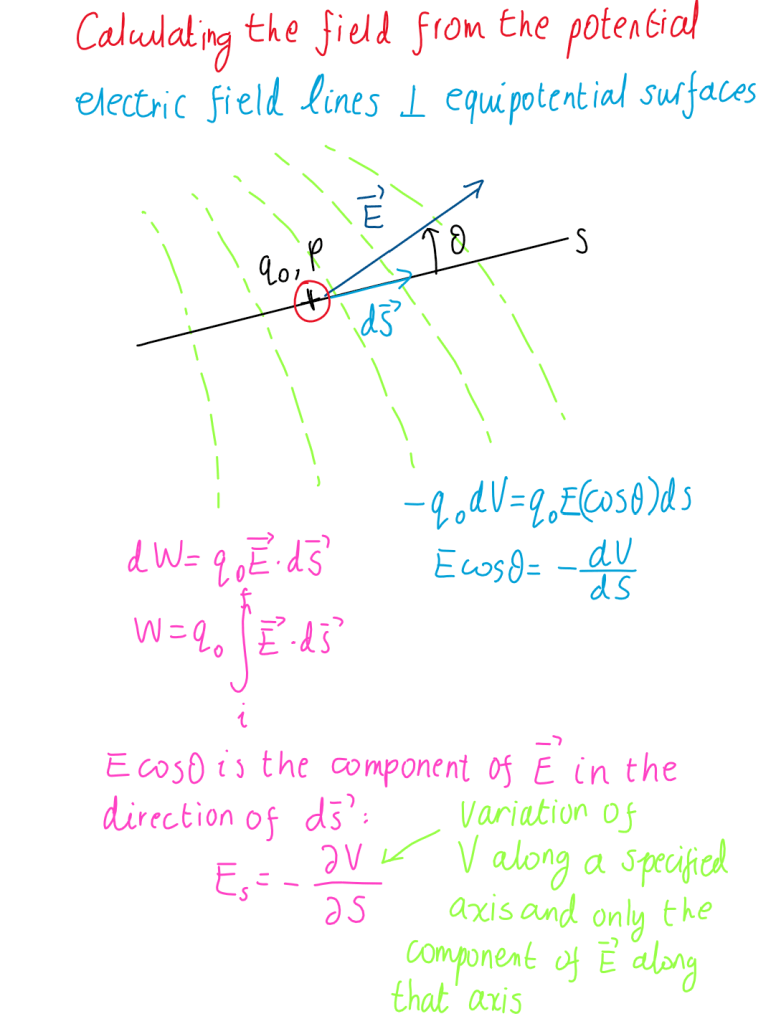 Calculating the field from the potential
electric field lines ⊥ equipotential surfaces
E⃗
θ
S
q₀, P
ds⃗
-q₀dV=q₀E(cosθ)ds
dW= q₀E⃗·ds⃗
Ecosθ= -dV/dS
W=q₀ ∫ᵢᶠ E⃗·ds⃗
Ecosθ is the component of E⃗ in the
direction of ds⃗:
Eₛ= - ∂V/∂S
Variation of
V along a specified
axis and only the
component of E⃗ along
that axis